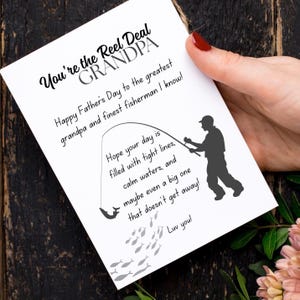 You're the Reel Deal
GRANDPA
Happy Father's Day to the greatest
grandpa and finest fisherman I know!
Hope your day is
filled with tight lines,
calm waters, and
maybe even a big one
that doesn't get away!
Luv you!